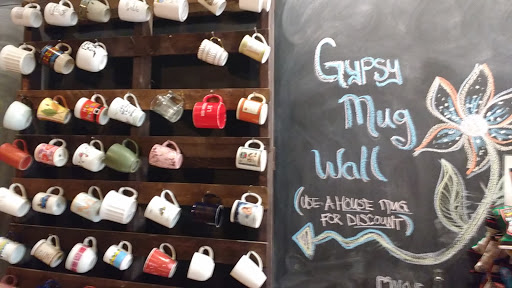 Gypsy
Mug
Wall
(USE A HOUSE MUG
FOR DISCOUNT)